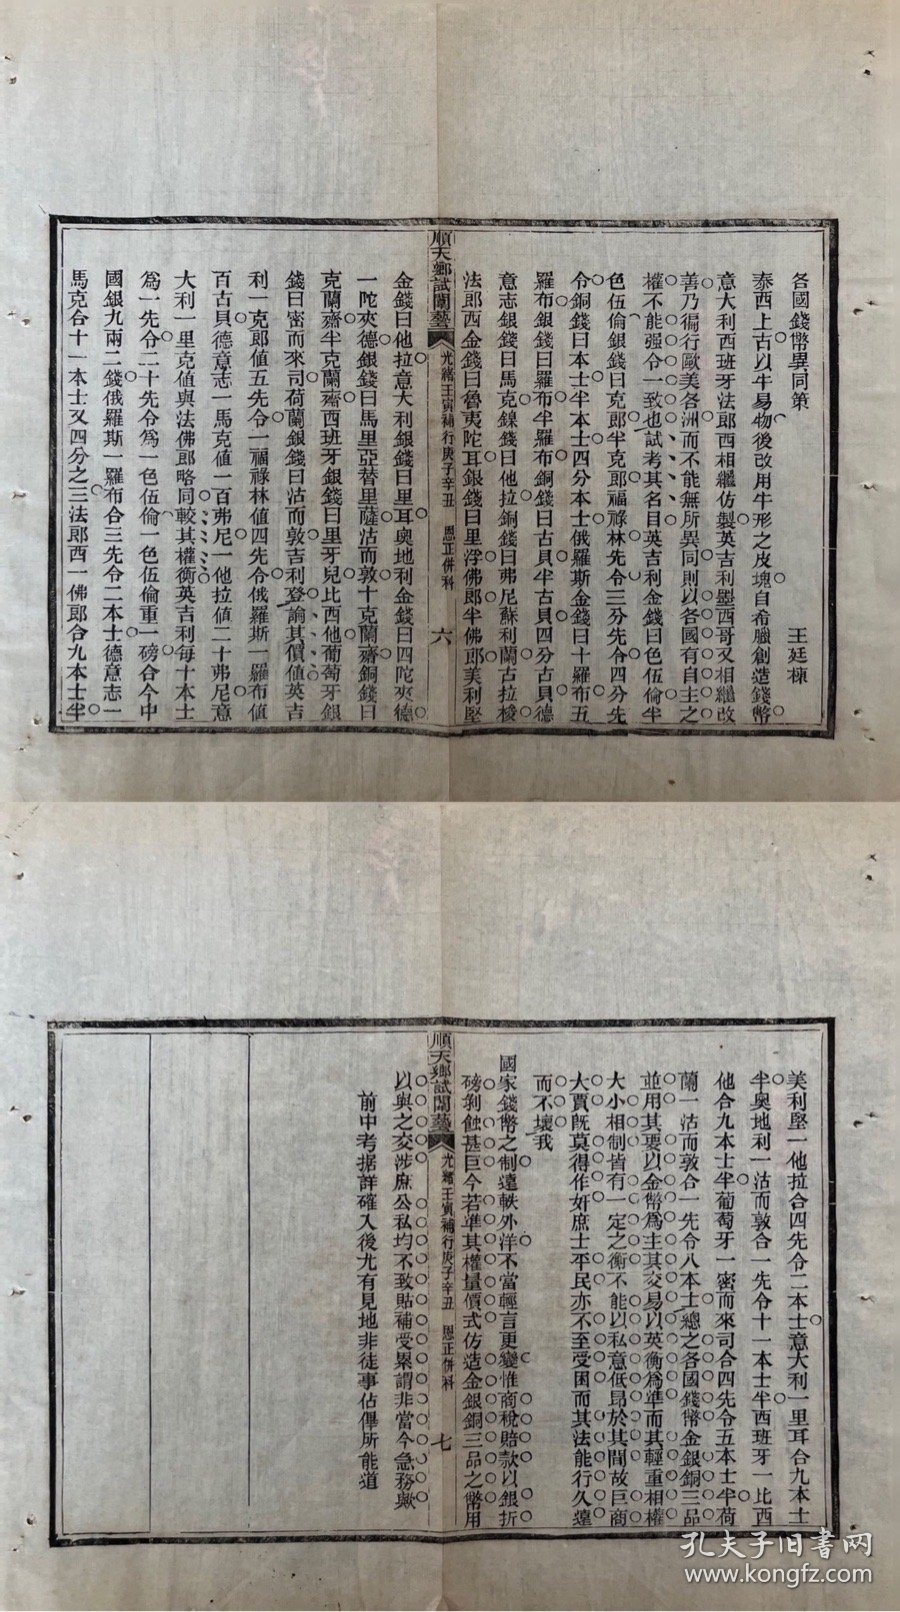 各國錢幣異同策
王廷楝
泰西上古以牛易物後改用牛形之皮塊自希臘創造錢幣
意大利西班牙法郎西相繼仿製英吉利墨西哥又相繼改
善乃徧行歐美各洲而不能無所異同則以各國有自主之
權不能强令一致也試考其名目英吉利金錢曰色伍倫半
色伍倫銀錢曰克郎半克郎福祿林先令三分先令四分先
令銅錢曰本士半本士四分本士俄羅斯金錢曰十羅布五
羅布銀錢曰羅布半羅布銅錢曰古貝半古貝四分古貝德
意志銀錢曰馬克鎳錢曰他拉銅錢曰弗尼蘇利蘭古拉梭
法郎西金錢曰魯夷陀耳銀錢曰里浮佛郎半佛郎美利堅
順天鄉試闈藝
光緒壬寅補行庚子辛丑 恩正併科
六
金錢曰他拉意大利銀錢曰里耳奧地利金錢曰四陀夾德
一陀夾德銀錢曰馬里亞替里薩沽而敦十克蘭齋銅錢曰
克蘭齋半克蘭齋西班牙銀錢曰里牙兒比西他葡萄牙銀
錢曰密而來司荷蘭銀錢曰沽而敦吉利登論其價值英吉
利一克郎值五先令一福祿林值四先令俄羅斯一羅布值
百古貝德意志一馬克值一百弗尼一他拉值二十弗尼意
大利一里克值與法佛郎略同較其權衡英吉利每十本士
爲一先令二十先令爲一色伍倫一色伍倫重一磅合今中
國銀九兩二錢俄羅斯一羅布合三先令二本士德意志一
馬克合十一本士又四分之三法郎西一佛郎合九本士半
美利堅一他拉合四先令二本士意大利一里耳合九本士
半奧地利一沽而敦合一先令十一本士半西班牙一比西
他合九本士半葡萄牙一密而來司合四先令五本士半荷
蘭一沽而敦合一先令八本士總之各國錢幣金銀銅三品
並用其要以金幣爲主其交易以英衡爲準而其輕重相權
大小相制皆有一定之衡不能以私意低昂於其間故巨商
大賈旣莫得作奸庶士平民亦不至受困而其法能行久遠
而不壞我
國家錢幣之制遠軼外洋不當輕言更變惟商稅賠款以銀折
磅剝蝕甚巨今若準其權量價式仿造金銀銅三品之幣用
順天鄉試闈藝
光緒壬寅補行庚子辛丑 恩正併科
七
以與之交涉庶公私均不致貼補受累謂非當今急務歟
前中考据詳確入後尤有見地非徒事佔俾所能道
孔夫子旧书网
www.kongfz.com